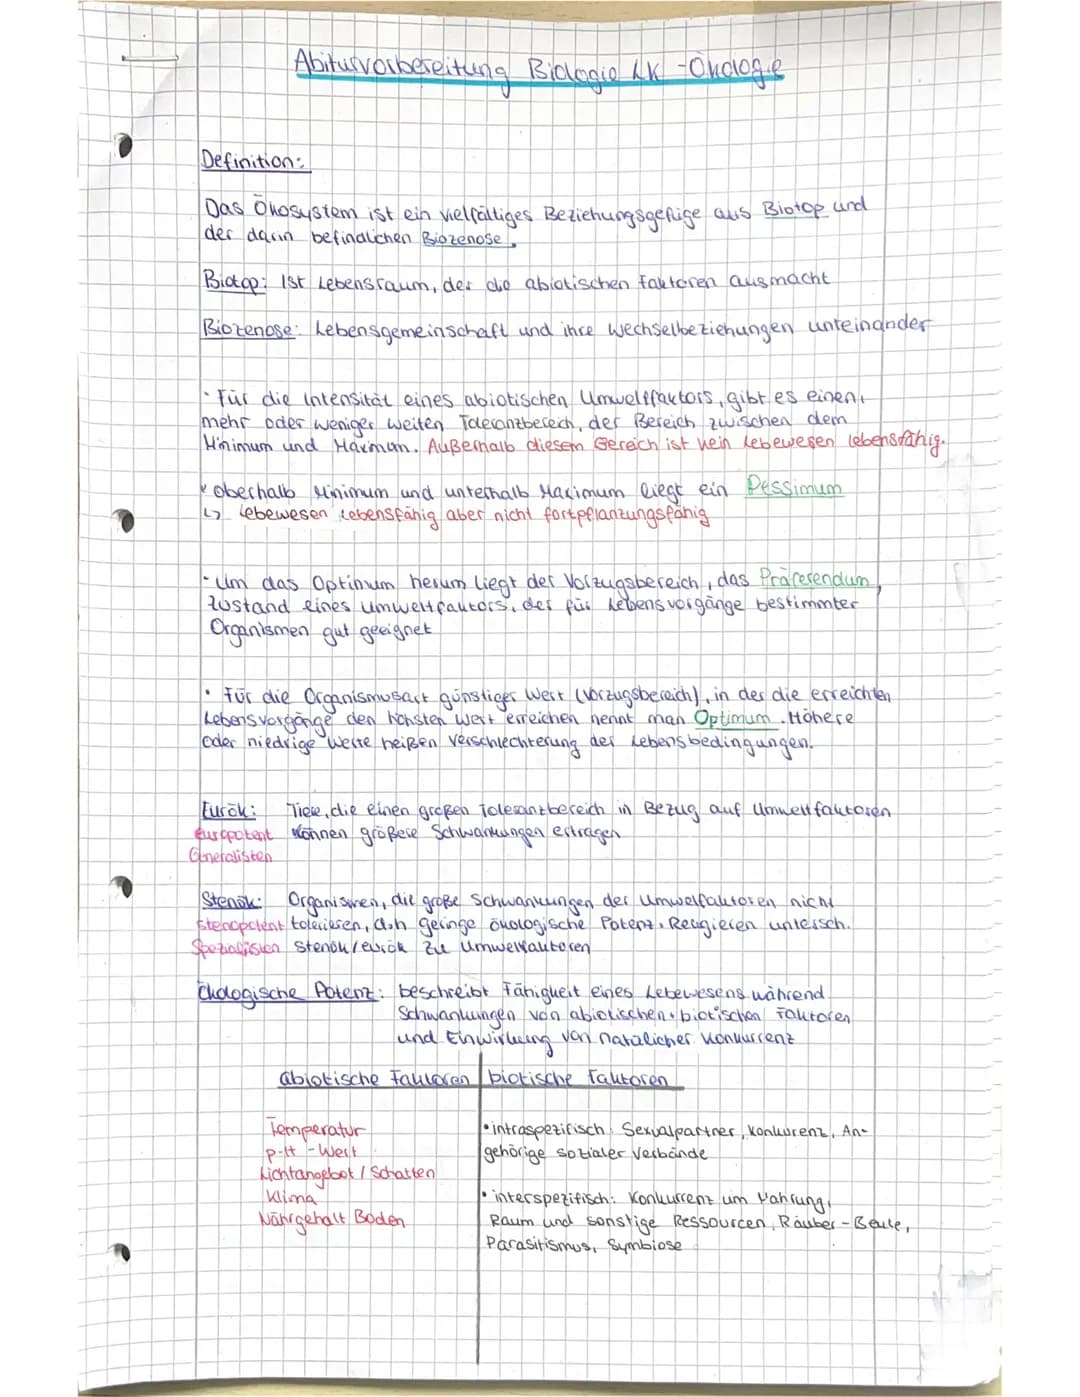 Abiturvorbereitung Biologie LK - Ökologie
Definition:
Das Ökosystem ist ein vielfältiges Beziehungsgefüge aus Biotop und
der darin befindlichen Biozenose.
Biotop: Ist Lebensraum, der die abiotischen Faktoren ausmacht
Biozenose: Lebensgemeinschaft und ihre Wechselbeziehungen untereinander
• Für die Intensität eines abiotischen Umweltfaktors, gibt es einen,
mehr oder weniger weiten Toleranzbereich, der Bereich zwischen dem
Minimum und Maximum. Außerhalb diesem Bereich ist kein Lebewesen lebensfähig.
• oberhalb Minimum und unterhalb Maximum liegt ein Pessimum
↳ Lebewesen lebensfähig aber nicht fortpflanzungsfähig
• Um das Optimum herum liegt der Vorzugsbereich, das Präferendum,
Zustand eines Umweltfaktors, der für Lebensvorgänge bestimmter
Organismen gut geeignet
• Für die Organismusart günstiger Wert (Vorzugsbereich), in der die erreichten
Lebensvorgänge den höhsten Wert erreichen nennt man Optimum. Höhere
oder niedrige Werte heißen Verschlechterung der Lebensbedingungen.
Eurök: Tiere, die einen großen Toleranzbereich in Bezug auf Umweltfaktoren
Europotent können größere Schwankungen ertragen
Generalisten
Stenök: Organismen, die große Schwankungen der Umwelfaktoren nicht
Stenopotent tolerieren, d.h geringe ökologische Potenz. Reagieren untersch.
Spezialisten stenök/eurök zu Umweltfaktoren
Ökologische Potenz: beschreibt Fähigkeit eines Lebewesens während
Schwankungen von abiotischen + biotischen Faktoren
und Einwirkung von natülicher Konkurrenz
abiotische Faktoren | biotische Faktoren
Temperatur
p-H -Wert
Lichtangebot / Schatten
Klima
Nährgehalt Boden
• intraspezifisch: Sexualpartner, Konkurenz, An-
gehörige sozialer Verbände
• interspezifisch: Konkurrenz um Nahrung,
Raum und sonstige Ressourcen, Räuber-Beute,
Parasitismus, Symbiose